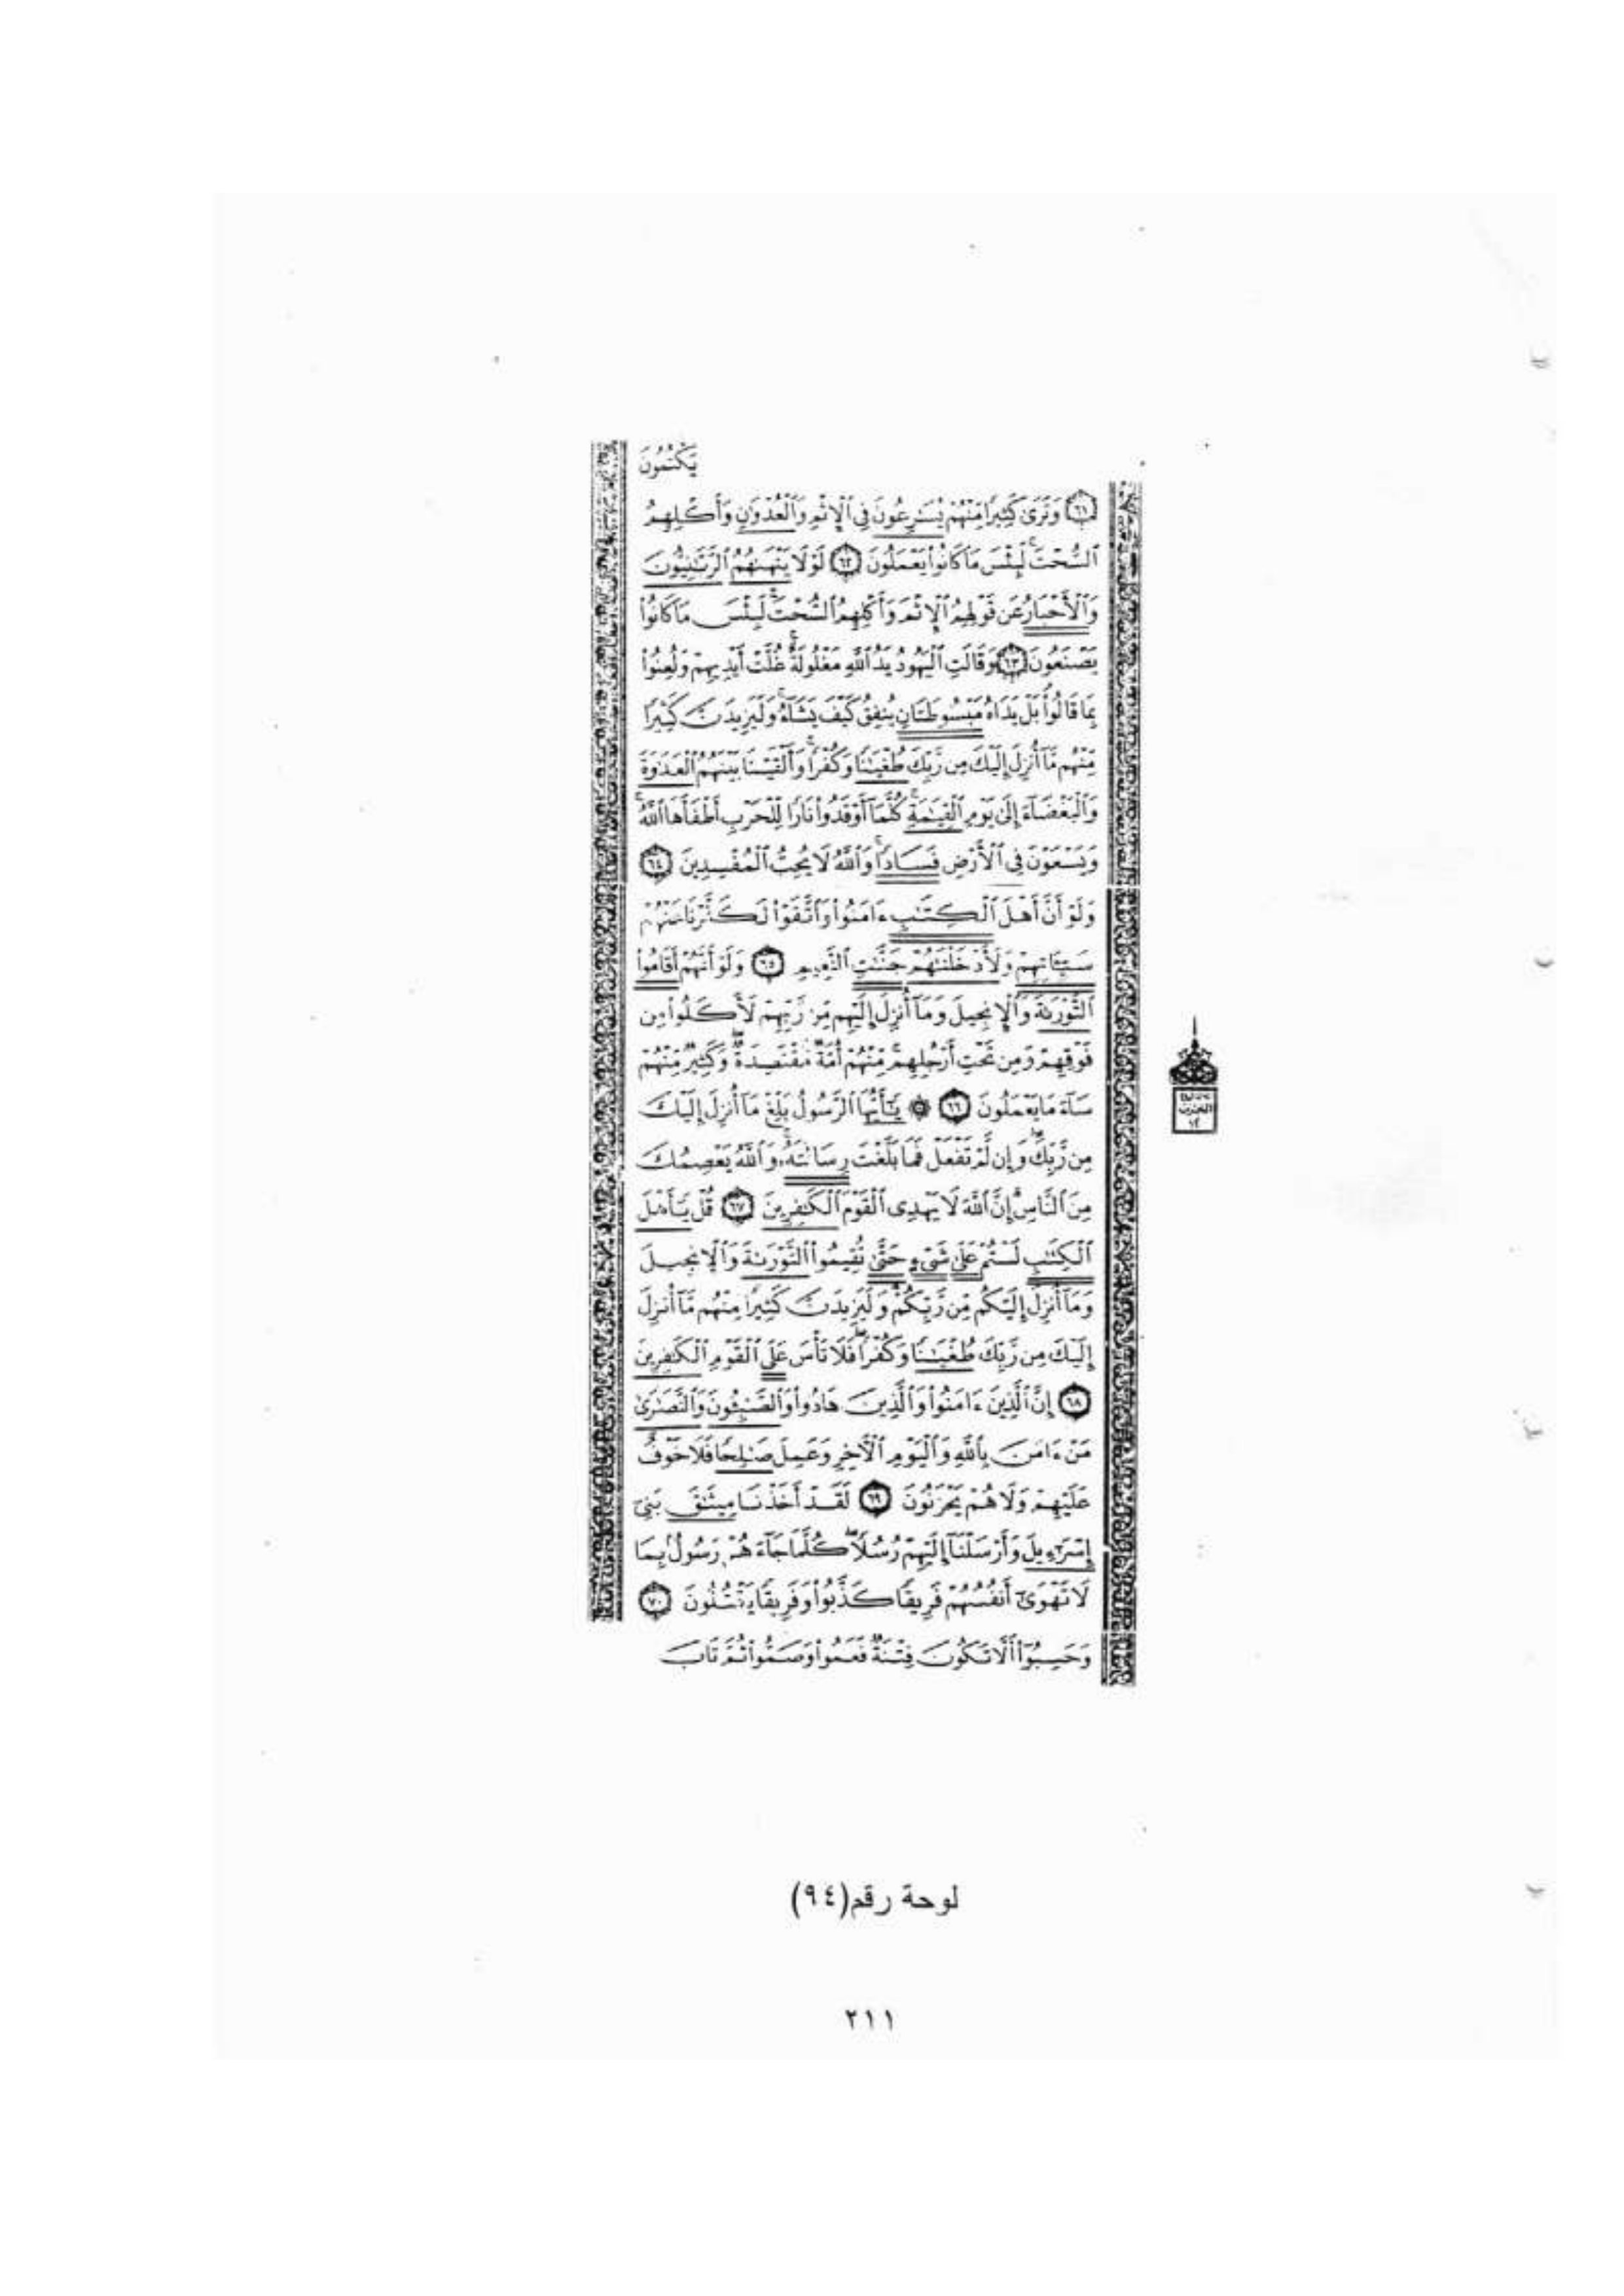 يَكْتُمُونَ
٦١ وَتَرَىٰ كَثِيرًا مِّنْهُمْ يُسَٰرِعُونَ فِي ٱلْإِثْمِ وَٱلْعُدْوَٰنِ وَأَكْلِهِمُ
ٱلسُّحْتَ ۚ لَبِئْسَ مَا كَانُوا۟ يَعْمَلُونَ ٦٢ لَوْلَا يَنْهَىٰهُمُ ٱلرَّبَّٰنِيُّونَ
وَٱلْأَحْبَارُ عَن قَوْلِهِمُ ٱلْإِثْمَ وَأَكْلِهِمُ ٱلسُّحْتَ ۚ لَبِئْسَ مَا كَانُوا۟
يَصْنَعُونَ ٦٣ وَقَالَتِ ٱلْيَهُودُ يَدُ ٱللَّهِ مَغْلُولَةٌ ۚ غُلَّتْ أَيْدِيهِمْ وَلُعِنُوا۟
بِمَا قَالُوا۟ ۘ بَلْ يَدَاهُ مَبْسُوطَتَانِ يُنفِقُ كَيْفَ يَشَآءُ ۚ وَلَيَزِيدَنَّ كَثِيرًا
مِّنْهُم مَّآ أُنزِلَ إِلَيْكَ مِن رَّبِّكَ طُغْيَٰنًا وَكُفْرًا ۚ وَأَلْقَيْنَا بَيْنَهُمُ ٱلْعَدَٰوَةَ
وَٱلْبَغْضَآءَ إِلَىٰ يَوْمِ ٱلْقِيَٰمَةِ ۚ كُلَّمَآ أَوْقَدُوا۟ نَارًا لِّلْحَرْبِ أَطْفَأَهَا ٱللَّهُ ۚ
وَيَسْعَوْنَ فِي ٱلْأَرْضِ فَسَادًا ۚ وَٱللَّهُ لَا يُحِبُّ ٱلْمُفْسِدِينَ ٦٤
وَلَوْ أَنَّ أَهْلَ ٱلْكِتَٰبِ ءَامَنُوا۟ وَٱتَّقَوْا۟ لَكَفَّرْنَا عَنْهُمْ
سَيِّـَٔاتِهِمْ وَلَأَدْخَلْنَٰهُمْ جَنَّٰتِ ٱلنَّعِيمِ ٦٥ وَلَوْ أَنَّهُمْ أَقَامُوا۟
ٱلتَّوْرَىٰةَ وَٱلْإِنجِيلَ وَمَآ أُنزِلَ إِلَيْهِم مِّن رَّبِّهِمْ لَأَكَلُوا۟ مِن
فَوْقِهِمْ وَمِن تَحْتِ أَرْجُلِهِم ۚ مِّنْهُمْ أُمَّةٌ مُّقْتَصِدَةٌ ۖ وَكَثِيرٌ مِّنْهُمْ
سَآءَ مَا يَعْمَلُونَ ٦٦ ۞ يَٰٓأَيُّهَا ٱلرَّسُولُ بَلِّغْ مَآ أُنزِلَ إِلَيْكَ
مِن رَّبِّكَ ۖ وَإِن لَّمْ تَفْعَلْ فَمَا بَلَّغْتَ رِسَالَتَهُۥ ۚ وَٱللَّهُ يَعْصِمُكَ
مِنَ ٱلنَّاسِ ۗ إِنَّ ٱللَّهَ لَا يَهْدِى ٱلْقَوْمَ ٱلْكَٰفِرِينَ ٦٧ قُلْ يَٰٓأَهْلَ
ٱلْكِتَٰبِ لَسْتُمْ عَلَىٰ شَىْءٍ حَتَّىٰ تُقِيمُوا۟ ٱلتَّوْرَىٰةَ وَٱلْإِنجِيلَ
وَمَآ أُنزِلَ إِلَيْكُم مِّن رَّبِّكُمْ ۗ وَلَيَزِيدَنَّ كَثِيرًا مِّنْهُم مَّآ أُنزِلَ
إِلَيْكَ مِن رَّبِّكَ طُغْيَٰنًا وَكُفْرًا ۖ فَلَا تَأْسَ عَلَى ٱلْقَوْمِ ٱلْكَٰفِرِينَ
٦٨ إِنَّ ٱلَّذِينَ ءَامَنُوا۟ وَٱلَّذِينَ هَادُوا۟ وَٱلصَّٰبِـُٔونَ وَٱلنَّصَٰرَىٰ
مَنْ ءَامَنَ بِٱللَّهِ وَٱلْيَوْمِ ٱلْءَاخِرِ وَعَمِلَ صَٰلِحًا فَلَا خَوْفٌ
عَلَيْهِمْ وَلَا هُمْ يَحْزَنُونَ ٦٩ لَقَدْ أَخَذْنَا مِيثَٰقَ بَنِىٓ
إِسْرَٰٓءِيلَ وَأَرْسَلْنَآ إِلَيْهِمْ رُسُلًا ۖ كُلَّمَا جَآءَهُمْ رَسُولٌۢ بِمَا
لَا تَهْوَىٰٓ أَنفُسُهُمْ فَرِيقًا كَذَّبُوا۟ وَفَرِيقًا يَقْتُلُونَ ٧٠
وَحَسِبُوٓا۟ أَلَّا تَكُونَ فِتْنَةٌ فَعَمُوا۟ وَصَمُّوا۟ ثُمَّ تَابَ
الحزب
١٢
لوحة رقم(٩٤)
٢١١